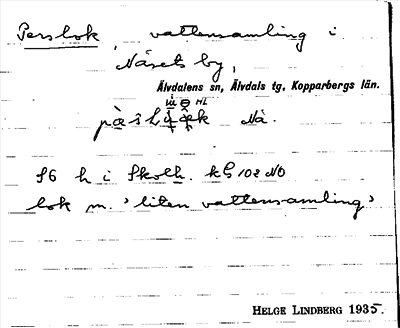 Perslok, vattensamling i
Näsets by,
Älvdalens sn, Älvdals tg, Kopparbergs län.
Nä.
S6 h i Skolh. kG 102 NO
lok m. 'liten vattensamling'
HELGE LINDBERG 1935.